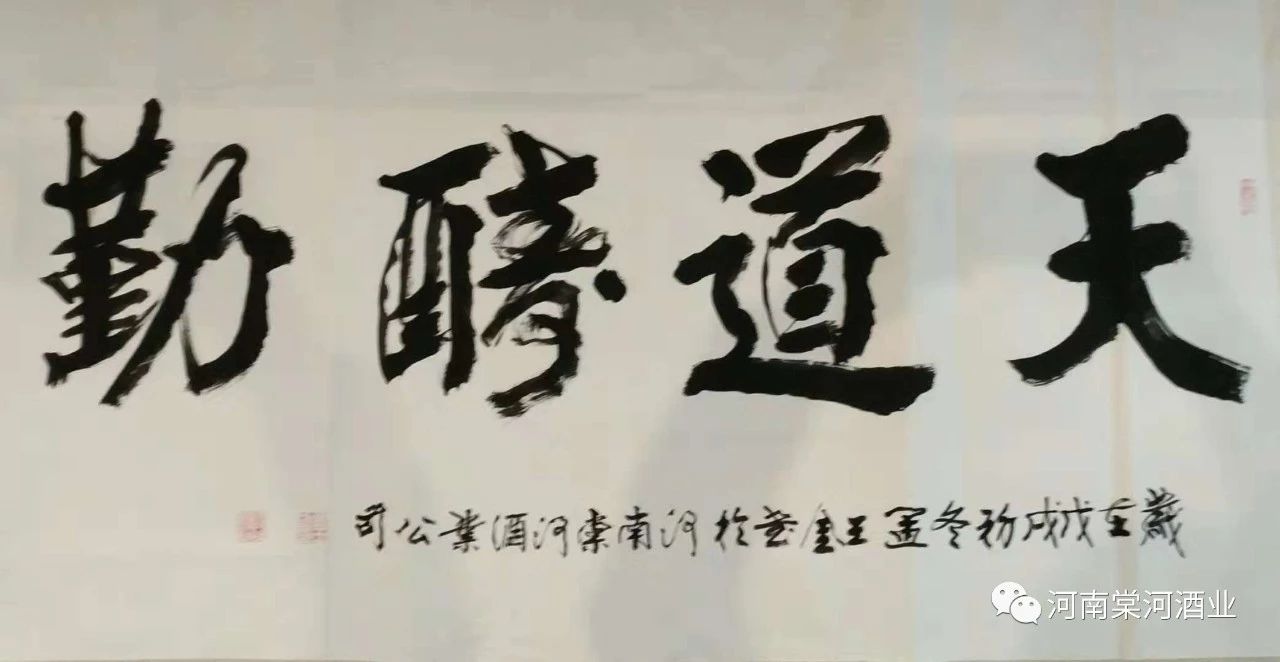 天道酬勤
歲在戊戌初冬孟王金書於河南棠河酒業公司
河南棠河酒业